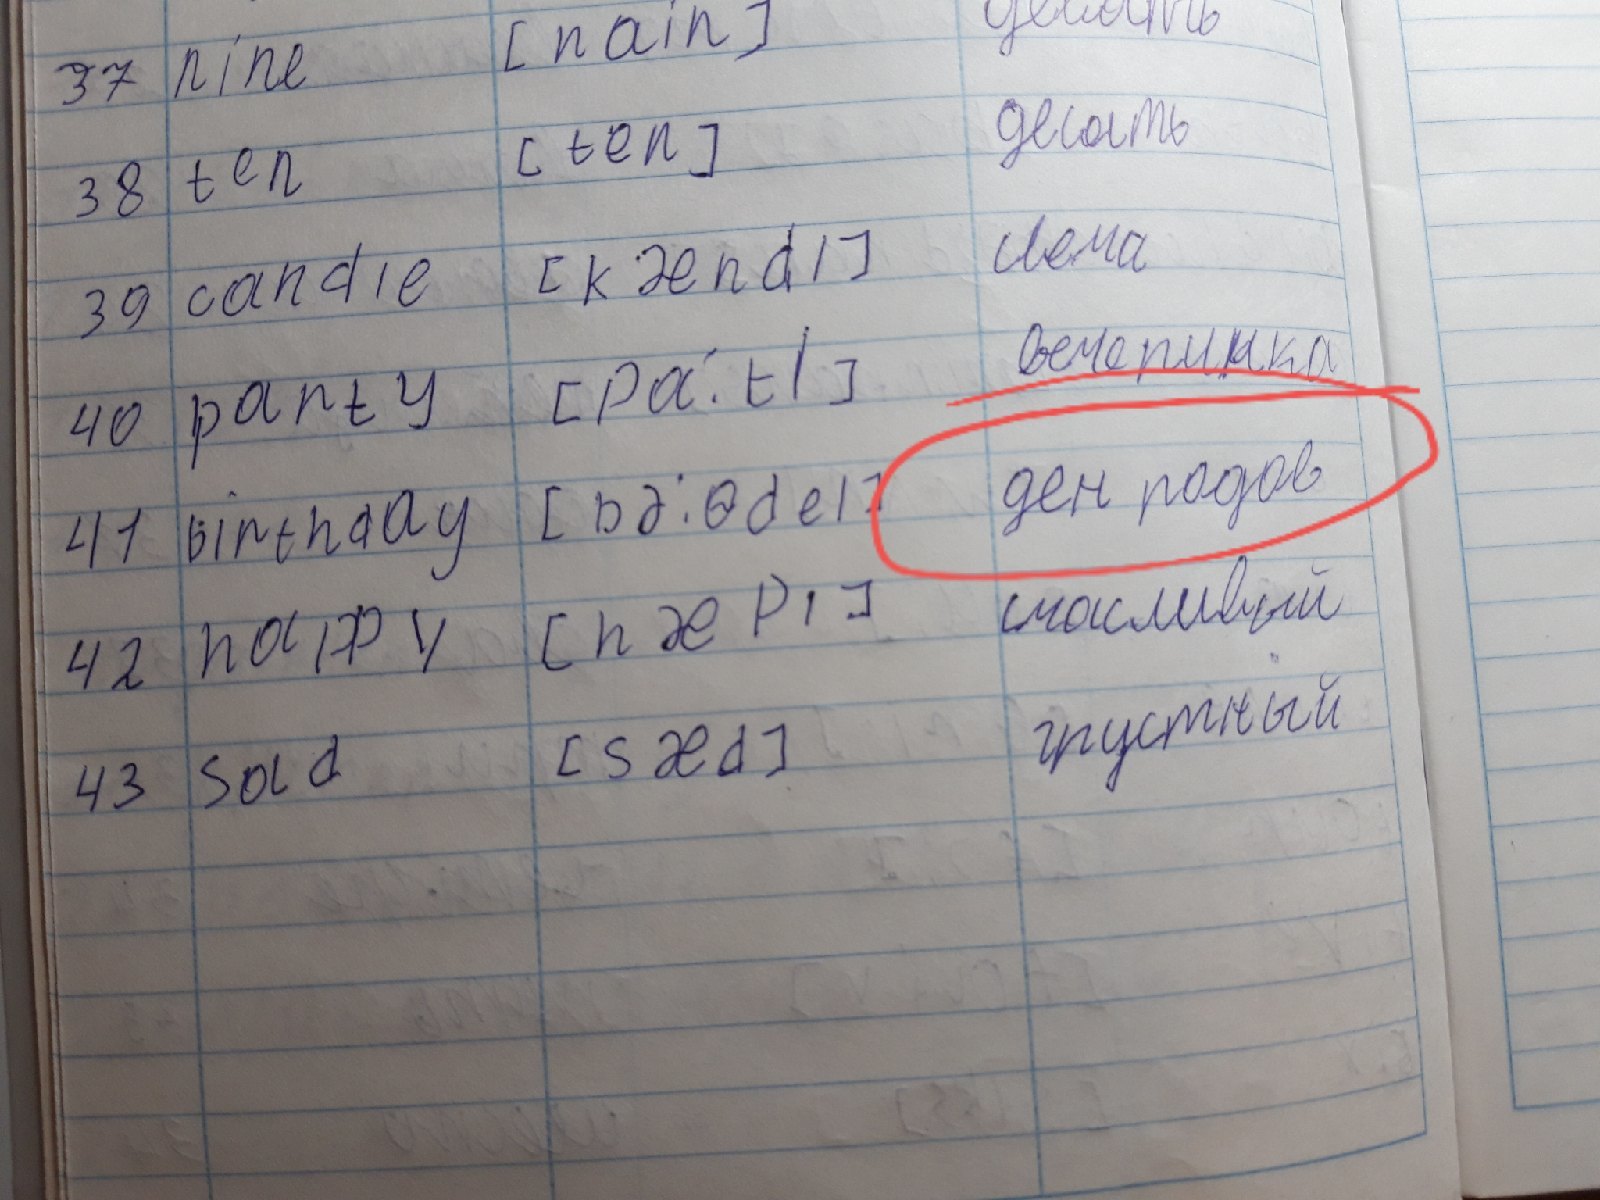 37 nine [nain] десать
38 ten [ten] десать
39 candle [kændl] свема
40 party [pa:tI] вечеринка
41 birthday [bə:θdeI] ден родов
42 happy [hæpI] счасливый
43 sad [sæd] грустный